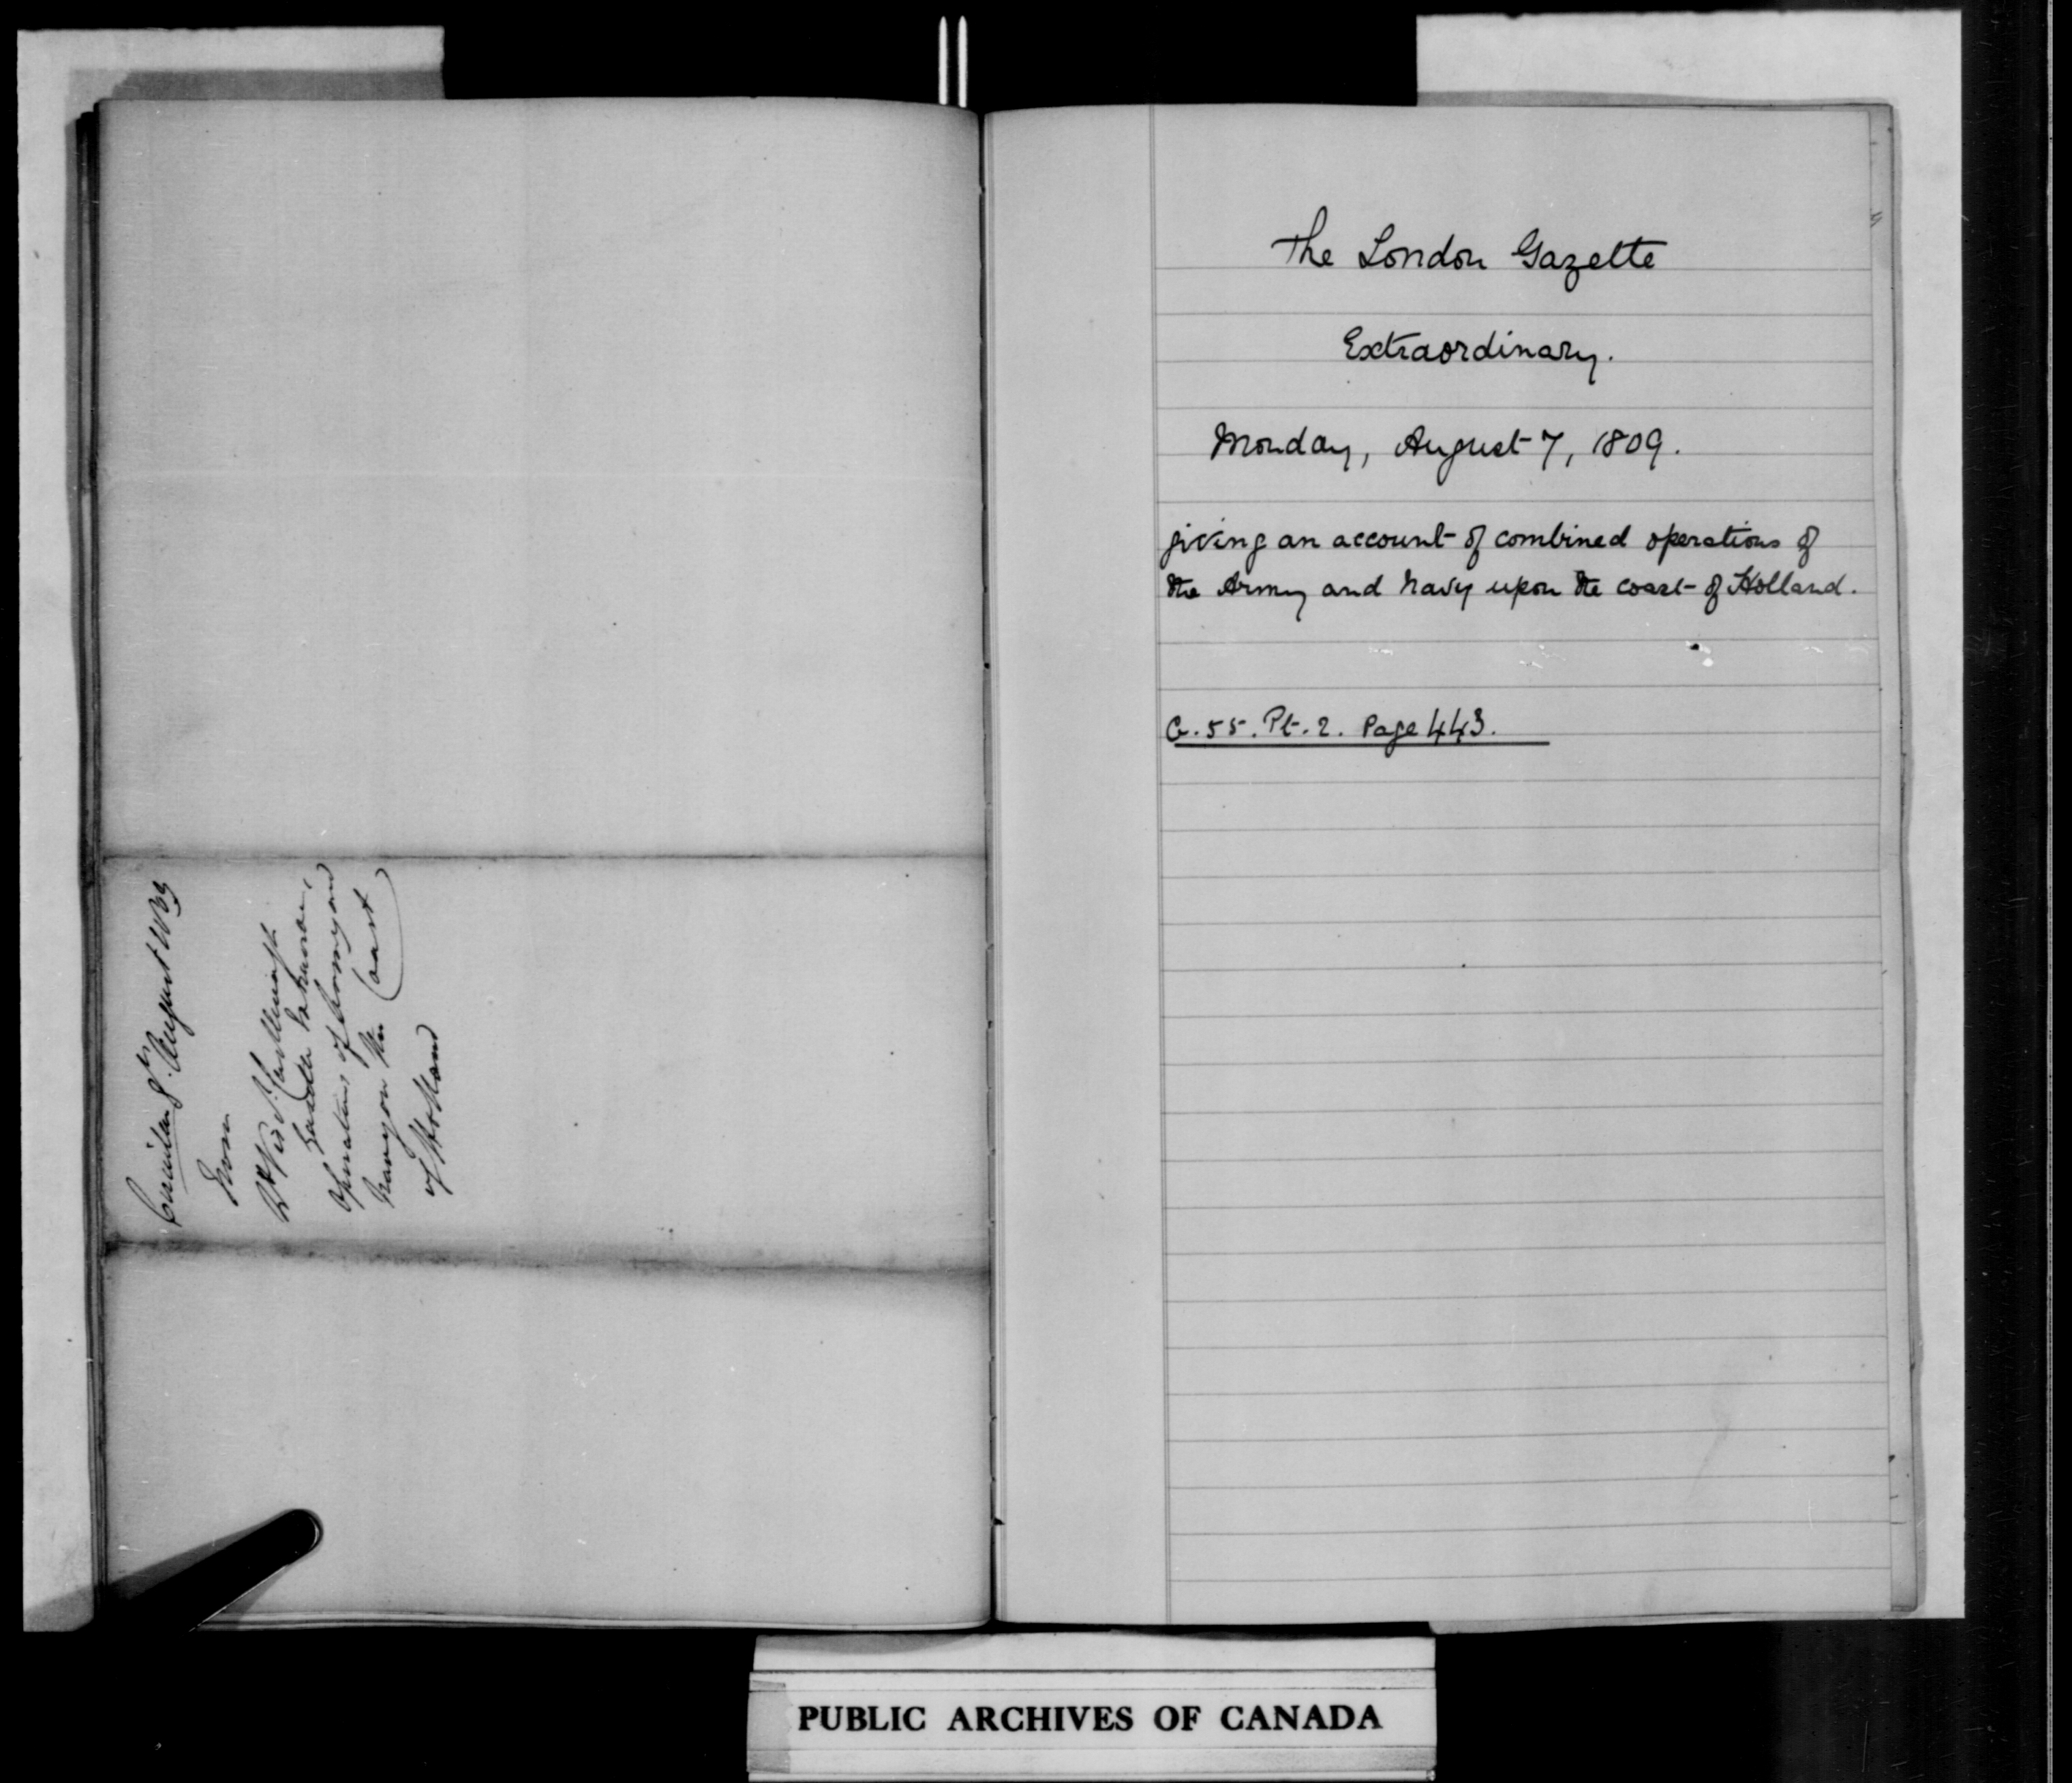 Circular 8th. August 1809
From
Rt. Hble Vis. Castlereagh
Gazette Extraor.
Operations of Army and
Navy on the Coast
of Holland
The London Gazette
Extraordinary.
Monday, August 7, 1809.
giving an account of combined operations of
the Army and Navy upon the coast of Holland.
C. 55. Pt. 2. Page 443.
PUBLIC ARCHIVES OF CANADA